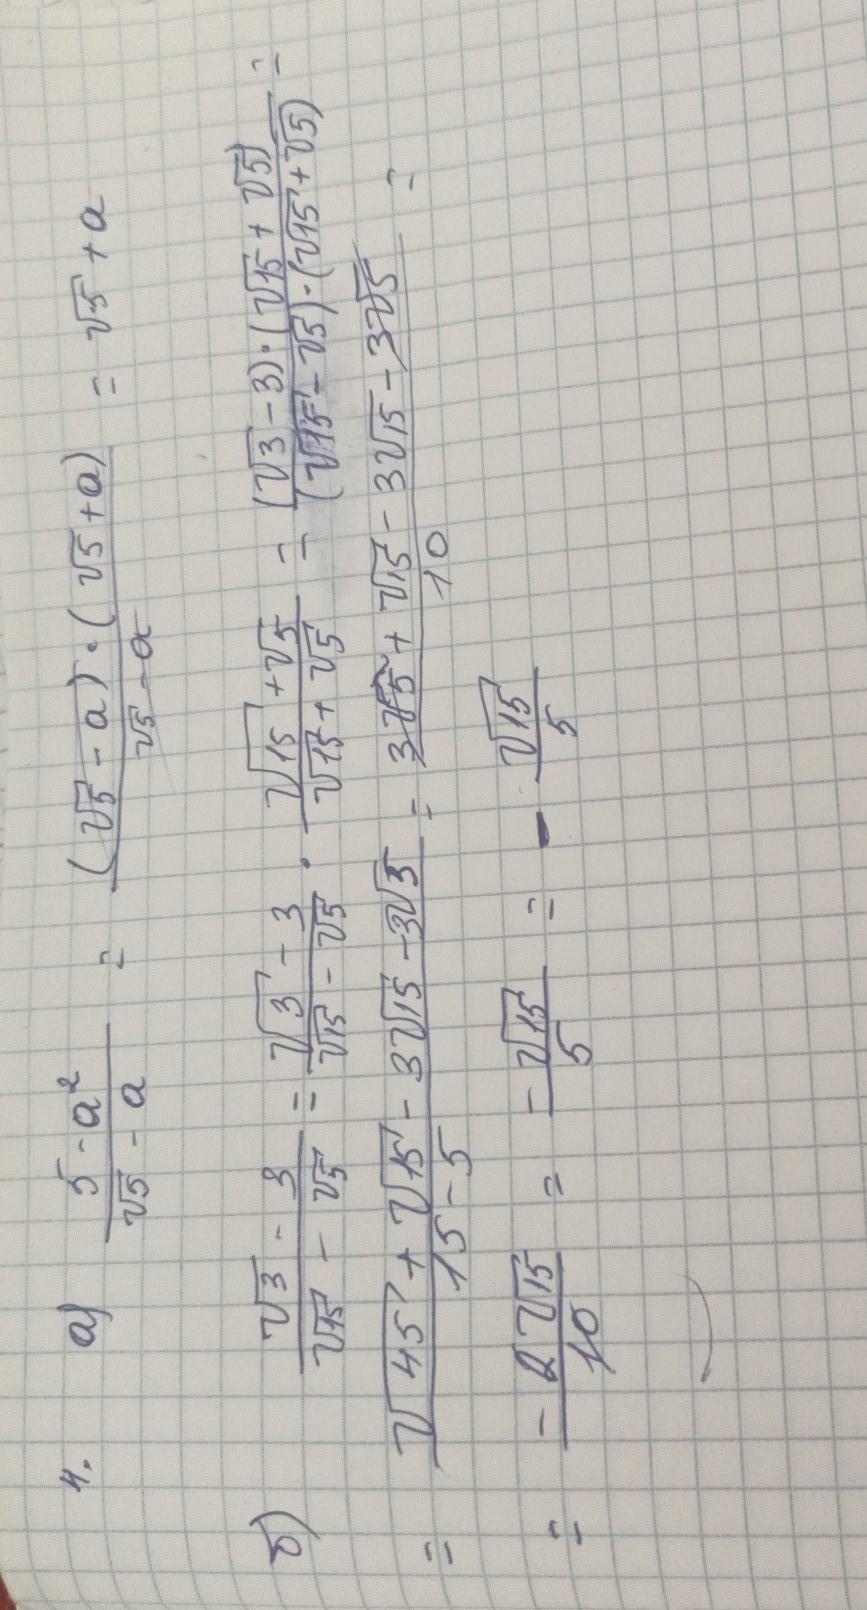 4. а) (5 - a²)/(√5 - a) = ((√5 - a)·(√5 + a))/(√5 - a) = √5 + a
б) (√3 - 3)/(√15 - √5) = (√3 - 3)/(√15 - √5) · (√15 + √5)/(√15 + √5) = ((√3 - 3)·(√15 + √5))/((√15 - √5)·(√15 + √5)) =
= (√45 + √15 - 3√15 - 3√5)/(15 - 5) = (3√5 + √15 - 3√15 - 3√5)/10 =
= (-2√15)/10 = (-√15)/5 = - √15/5